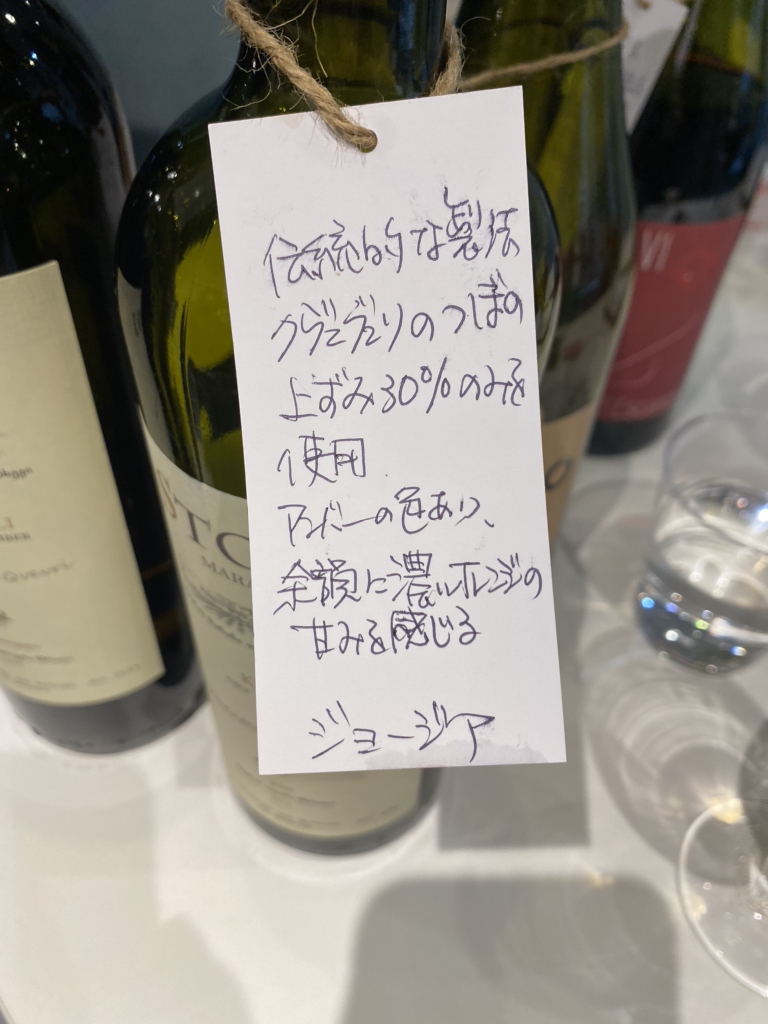 伝統的な製法
クヴェヴェリのつぼの
上ずみ30%のみを
使用
アンバーの色あり、
余韻に濃いオレンジの
甘みを感じる
ジョージア
STO
MARA
VI